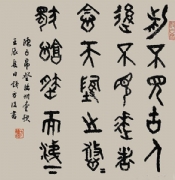 前不見古人
後不見來者
念天地之悠悠
獨愴然而涕下
陳子昂登幽州臺歌
夏日 書